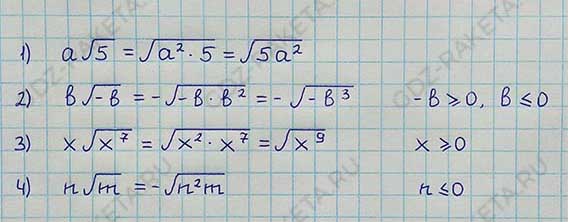 1) a√5 = √(a² · 5) = √(5a²)
2) в√(-в) = -√(-в · в²) = -√(-в³) -в ≥ 0, в ≤ 0
3) x√(x⁷) = √(x² · x⁷) = √(x⁹) x ≥ 0
4) n√m = -√(n²m) n ≤ 0
GDZ-RAKETA.RU